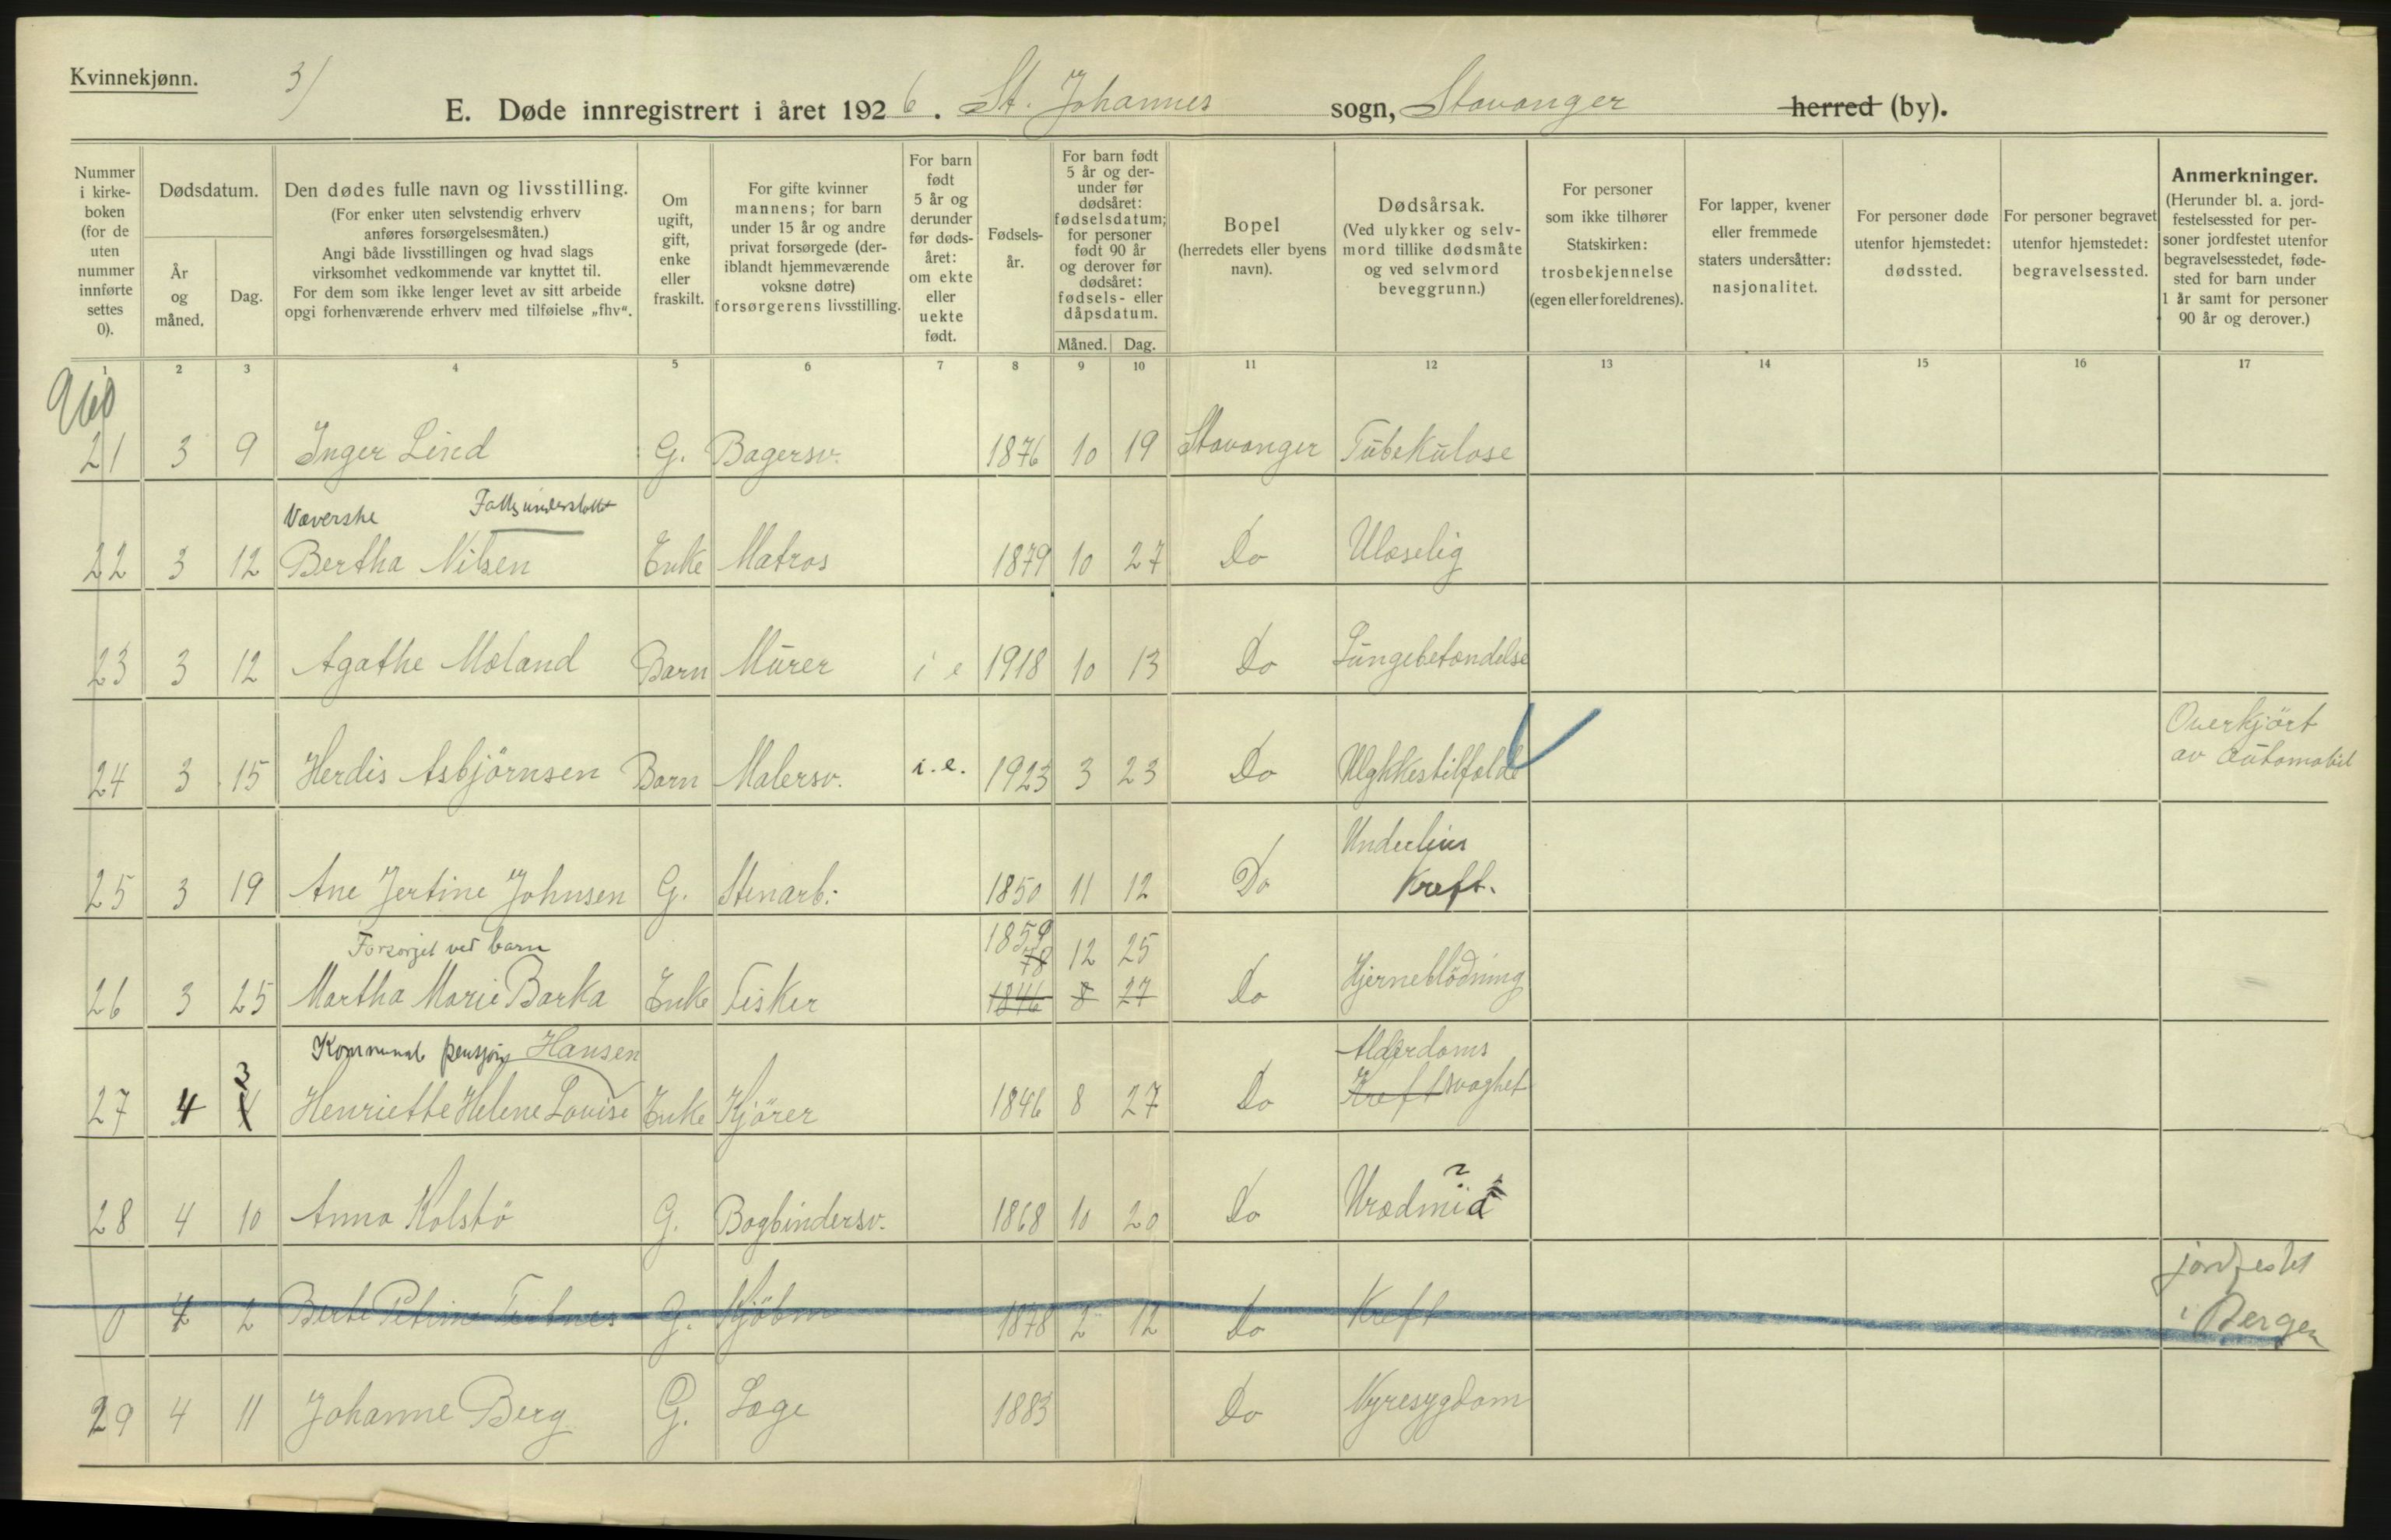 Kvinnekjønn.
3)
E. Døde innregistrert i året 1926. St. Johannes sogn, Stavanger herred (by).
Nummer i kirkeboken (for de uten nummer innførte settes 0).
Dødsdatum.
År og måned.
Dag.
Den dødes fulle navn og livsstilling.
(For enker uten selvstendig erhverv
anføres forsørgelsesmåten.)
Angi både livsstillingen og hvad slags
virksomhet vedkommende var knyttet til.
For dem som ikke lenger levet av sitt arbeide
opgi forhenværende erhverv med tilføielse „fhv“.
Om ugift, gift, enke eller fraskilt.
For gifte kvinner
mannens; for barn
under 15 år og andre
privat forsørgede (der-
iblandt hjemmeværende
voksne døtre)
forsørgerens livsstilling.
For barn født 5 år og derunder før dødsåret: om ekte eller uekte født.
Fødsels-
år.
For barn født
5 år og der-
under før
dødsåret:
fødselsdatum;
for personer
født 90 år
og derover før
dødsåret:
fødsels- eller
dåpsdatum.
Måned. Dag.
Bopel
(herredets eller byens
navn).
Dødsårsak.
(Ved ulykker og selv-
mord tillike dødsmåte
og ved selvmord
beveggrunn.)
For personer
som ikke tilhører
Statskirken:
trosbekjennelse
(egen eller foreldrenes).
For lapper, kvener
eller fremmede
staters undersåtter:
nasjonalitet.
For personer døde
utenfor hjemstedet:
dødssted.
For personer begravet
utenfor hjemstedet:
begravelsessted.
Anmerkninger.
(Herunder bl. a. jord-
festelsessted for per-
soner jordfestet utenfor
begravelsesstedet, føde-
sted for barn under
1 år samt for personer
90 år og derover.)
1 2 3 4 5 6 7 8 9 10 11 12 13 14 15 16 17
960
21 3 9 Inger Lised G. Bagersv. 1876 10 19 Stavanger Tuberkulose
Væverske
22 3 12 Bertha Nilsen Enke Matros 1879 10 27 Do Ulæselig
23 3 12 Agathe Moland Barn Murer i e 1918 10 13 Do Lungebetændelse
Overkjört
av automobil
24 3 15 Herdis Asbjörnsen Barn Malersv. i.e. 1923 3 23 Do Ulykkestilfælde
Underlivs
25 3 19 Ane Jertine Johnsen G. Stenarb: 1850 11 12 Do Kreft.
Forsørget ved barn 1859 12 25
78
26 3 25 Martha Marie Barka Enke Fisker 1846 8 27 Do Hjerneblödning
Kommunal pensjon Hansen Alderdoms
3
27 4 4 Henriette Helene Lovise Enke Kjörer 1846 8 27 Do Kreft svaghet
28 4 10 Anna Kolstö G. Bogbindersv. 1868 10 20 Do ?
jordfestet
i Bergen
0 4 2 Berte Petrine G. Kjöbm 1878 2 12 Do Kreft
29 4 11 Johanne Berg G. Læge 1883 Do Nyresygdom